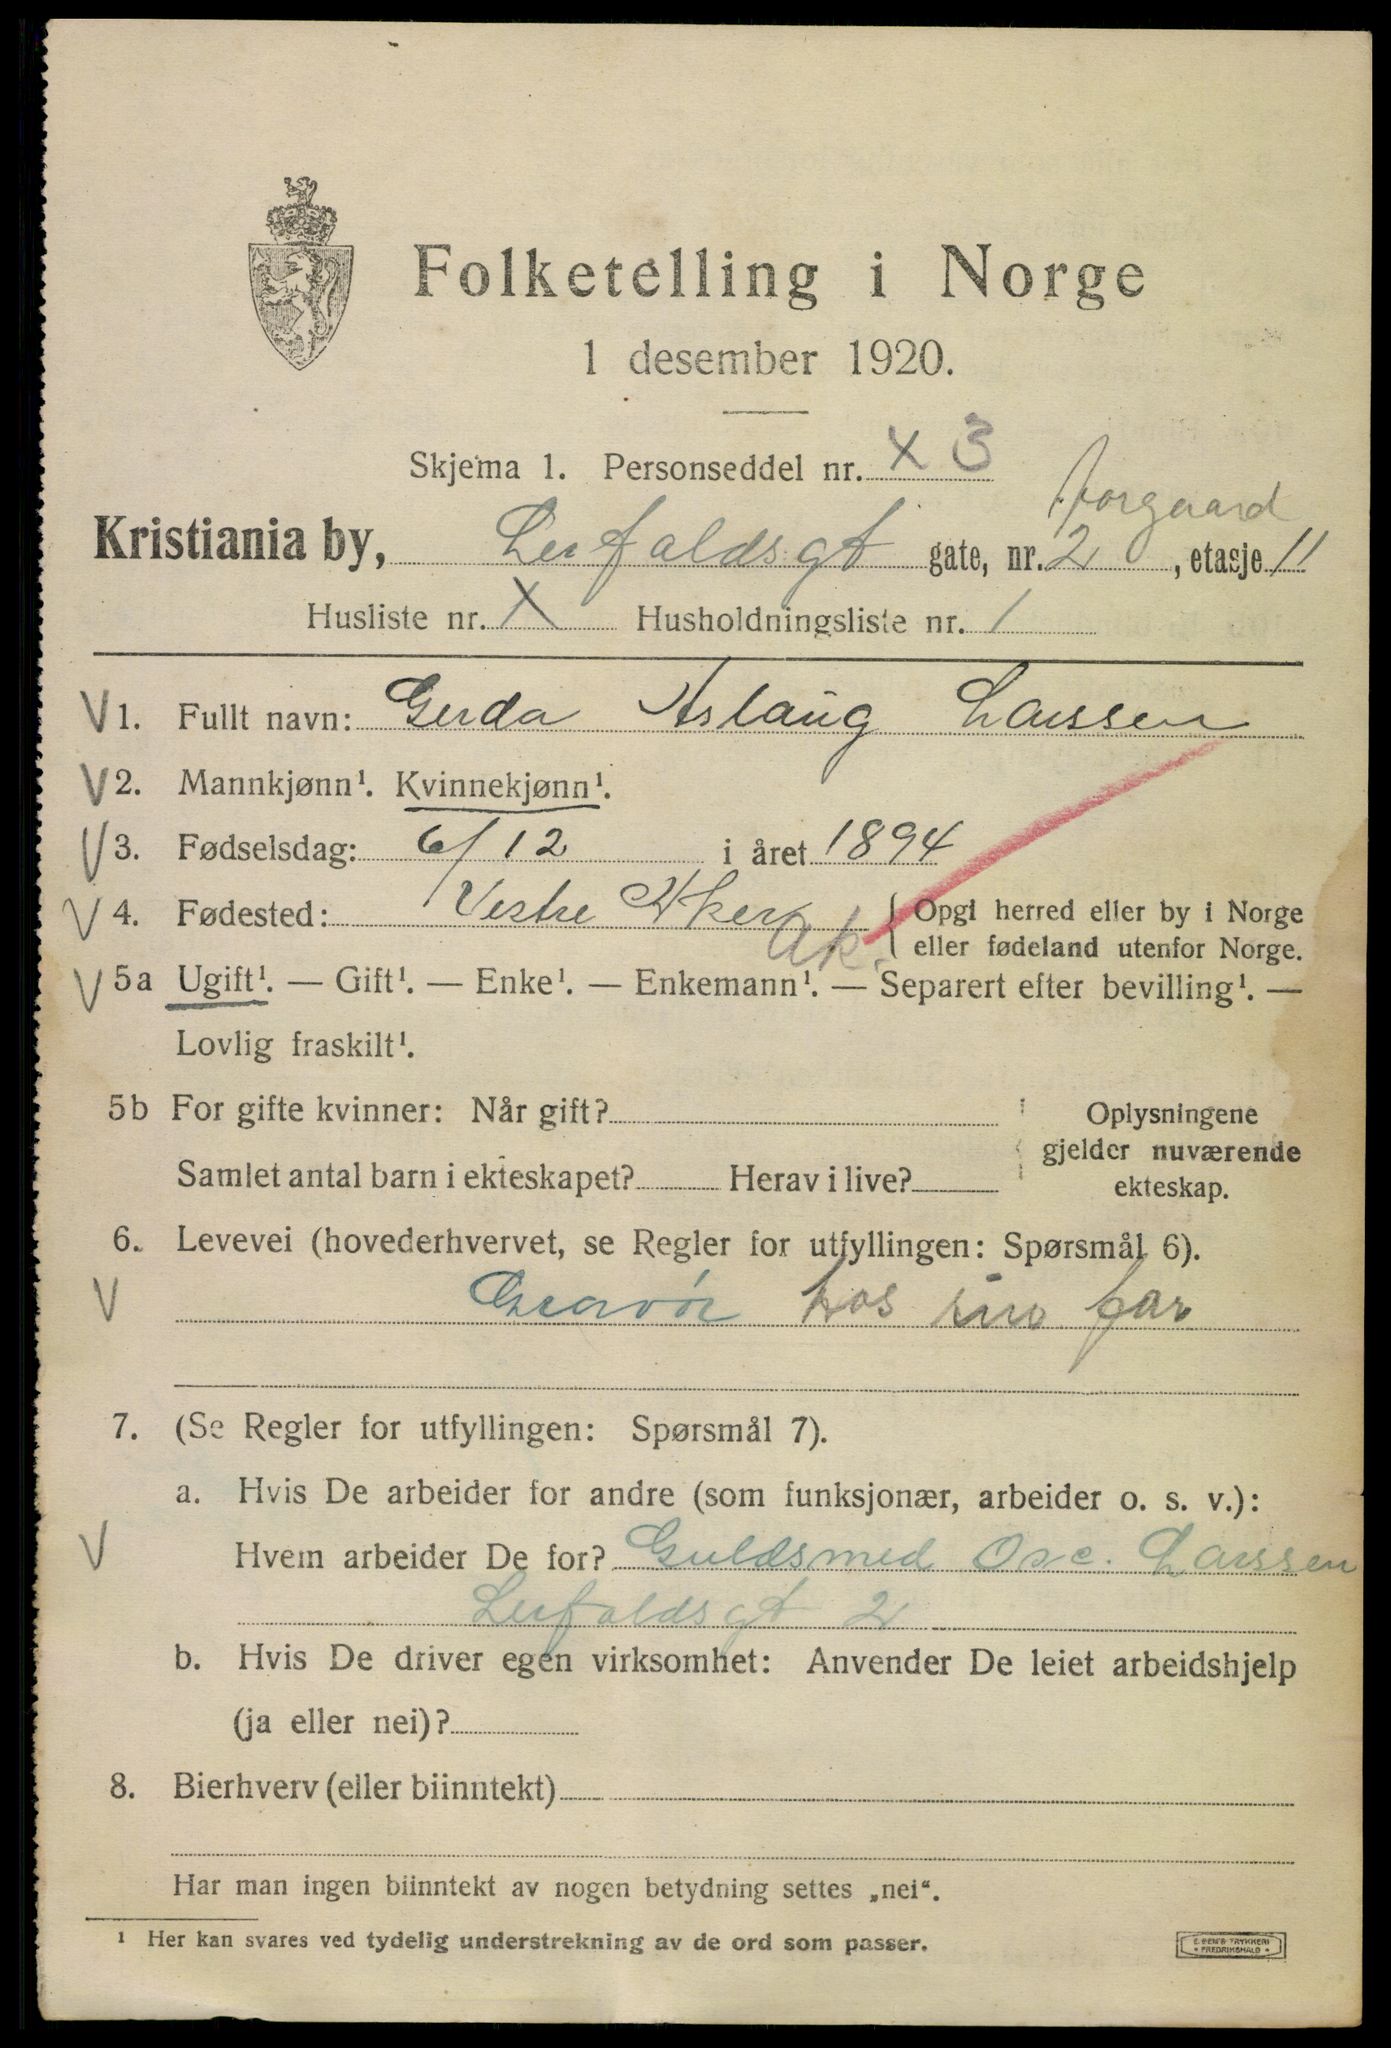 Folketelling i Norge
1 desember 1920.
Skjema 1. Personseddel nr. X 3
Forgaard
Kristiania by, Leufaldsgt gate, nr. 2, etasje 11
Husliste nr. X Husholdningsliste nr. 1
V 1. Fullt navn: Gerda Aslaug Larssen
V 2. Mannkjønn¹. Kvinnekjønn¹.
V 3. Fødselsdag: 6/12 i året 1894
V 4. Fødested: Vestre Aker Ak. { Opgi herred eller by i Norge
eller fødeland utenfor Norge.
V 5a Ugift¹. — Gift¹. — Enke¹. — Enkemann¹. — Separert efter bevilling¹. —
Lovlig fraskilt¹.
5b For gifte kvinner: Når gift? Oplysningene
gjelder nuværende
Samlet antal barn i ekteskapet? Herav i live? ekteskap.
6. Levevei (hovederhvervet, se Regler for utfyllingen: Spørsmål 6).
V Gravør hos sin far
7. (Se Regler for utfyllingen: Spørsmål 7).
a. Hvis De arbeider for andre (som funksjonær, arbeider o. s. v.):
V Hvem arbeider De for? Guldsmed Osc. Larssen
Leufaldsgt 2
b. Hvis De driver egen virksomhet: Anvender De leiet arbeidshjelp
(ja eller nei)?
8. Bierhverv (eller biinntekt)
Har man ingen biinntekt av nogen betydning settes „nei“.
¹ Her kan svares ved tydelig understrekning av de ord som passer.
TRYKKERI
FREDRIKSHALD